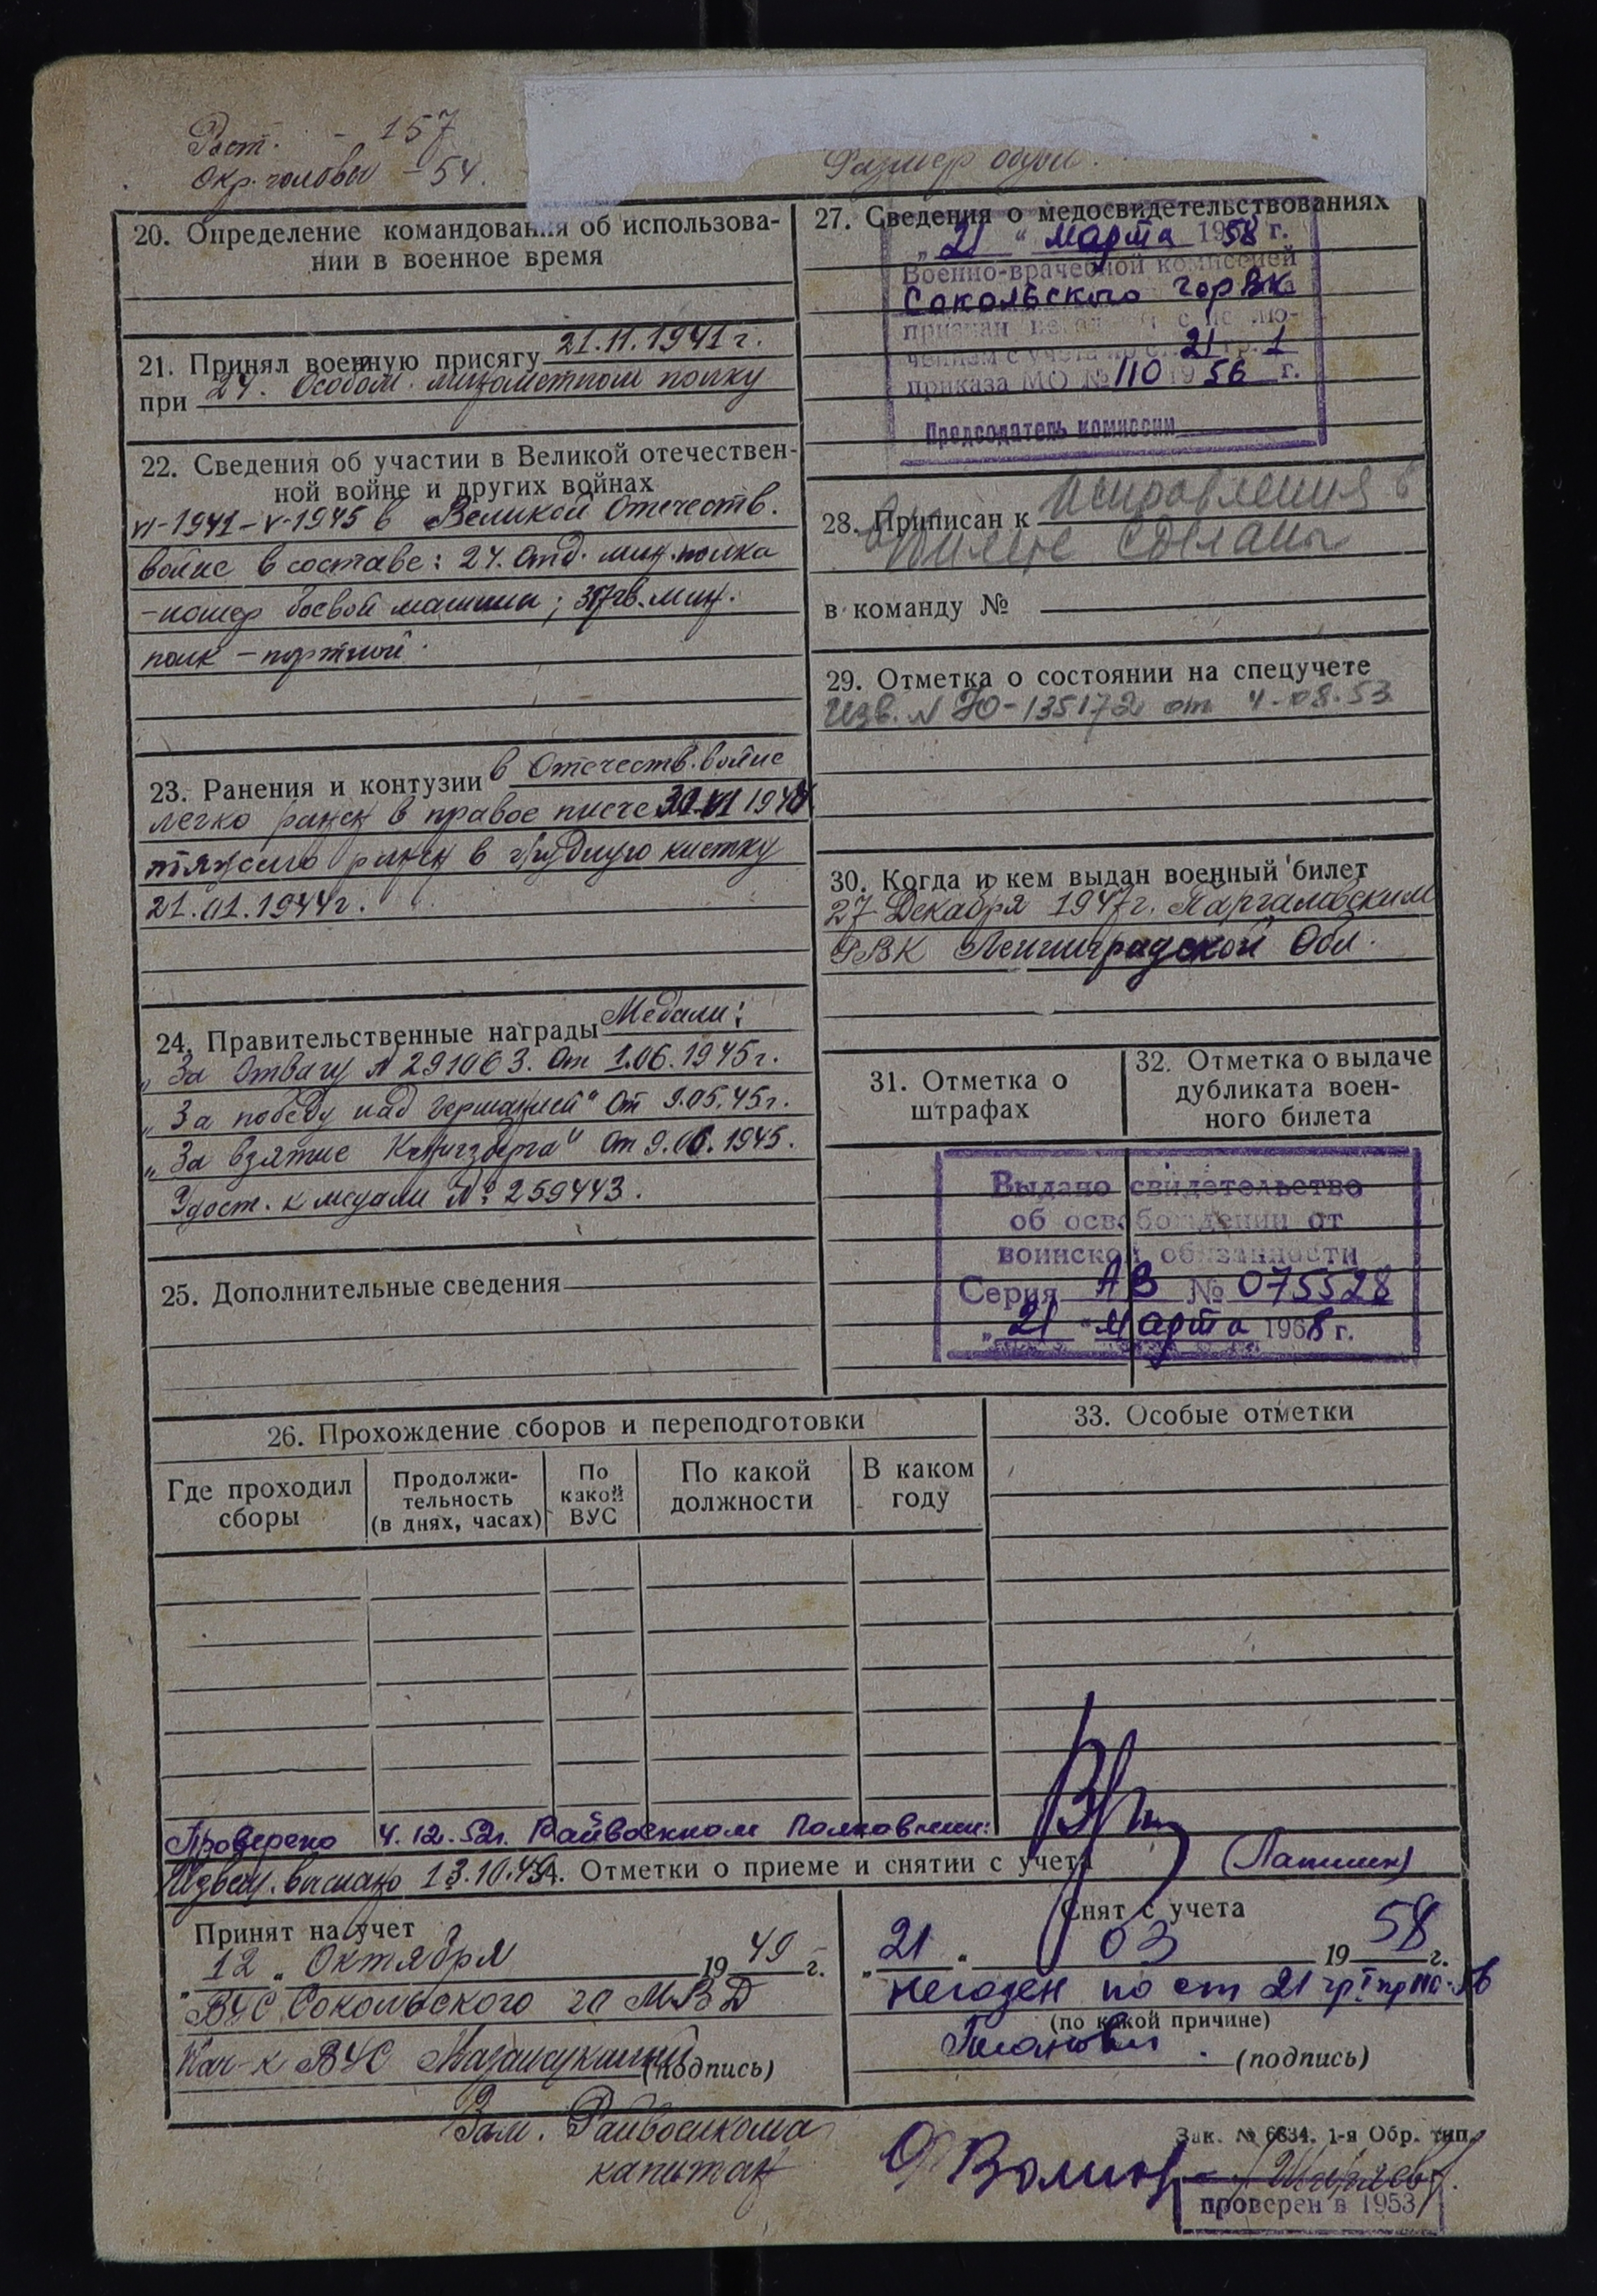 Рост. - 157
Окр. головы - 54.
Размер обуви.
20. Определение командования об использова-
нии в военное время
21. Принял военную присягу 21.11.1941 г.
при 24. Особом. минометном полку
22. Сведения об участии в Великой отечествен-
ной войне и других войнах
VI-1941-V-1945 в Великой Отечеств.
войне в составе: 24. отд. мин. полка
-номер боевой машины; гв. мин.
полк - портной.
23. Ранения и контузии в Отечеств. войне
легко ранен в правое плечо
тяжело ранен в грудную клетку
21.01.1944 г.
24. Правительственные награды Медали:
„За Отвагу N 291063. От 1.06.1945 г.
„За победу над Германией" от 9.05.45 г.
„За взятие Кенигзберга" от 9.06.1945.
Удост. к медали № 259443.
25. Дополнительные сведения
26. Прохождение сборов и переподготовки
Где проходил
сборы
Продолжи-
тельность
(в днях, часах)
По
какой
ВУС
По какой
должности
В каком
году
27. Сведения о медосвидетельствованиях
„21" марта 1958 г.
Военно-врачебной комиссией
Сокольского горВК
признан
чением с учета по ст. 21 гр. 1
приказа МО № 110 1956 г.
Председатель комиссии
28. Приписан к
Исправления в
билете сделаны
в команду №
29. Отметка о состоянии на спецучете
Изв. N Ю-135172 от 4.08.53
30. Когда и кем выдан военный билет
27 Декабря 1947 г. Парголовским
РВК Ленинградской Обл.
31. Отметка о
штрафах
32. Отметка о выдаче
дубликата воен-
ного билета
Выдано свидетельство
об освобождении от
воинской обязанности
Серия АВ № 075528
„21" марта 1968 г.
33. Особые отметки
Проверено 4.12.52 г. Райвоенком Полковник:
(Лапшин)
Извещ. выслано 13.10.49
34. Отметки о приеме и снятии с учета
Принят на учет
„12" Октября 1949 г.
ВУС Сокольского го МВД
Нач-к ВУС (подпись)
Зам. Райвоенкома
капитан
Снят с учета
„21" 03 1958 г.
негоден по ст 21 гр I пр 110-56
(по какой причине)
(подпись)
Зак. № 6634. 1-я Обр. тип.
проверен в 1953